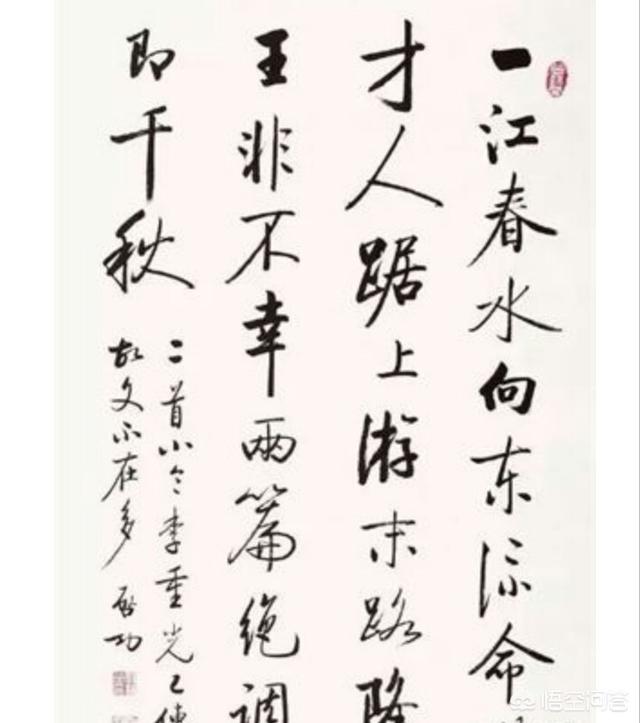 一江春水向东流命
才人踞上游末路降
王非不幸兩篇絕調
即千秋
二首小令李重光已傳
故文不在多 啟功
悟空问答